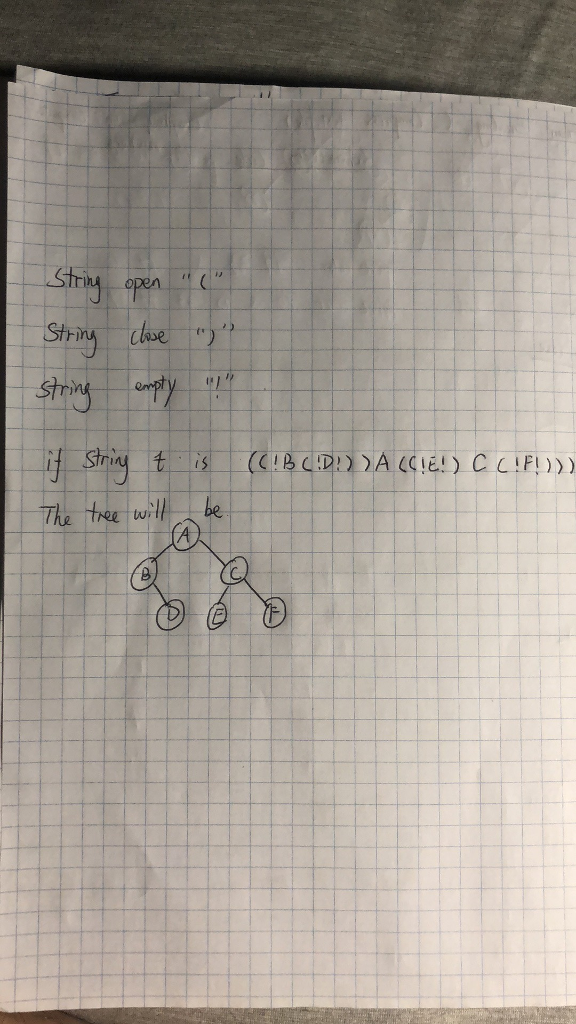 String open "("
String close ")"
String empty "!"
if String t is ((!B(!D!))A((!E!)C(!F!)))
The tree will be
A
B C
D E F